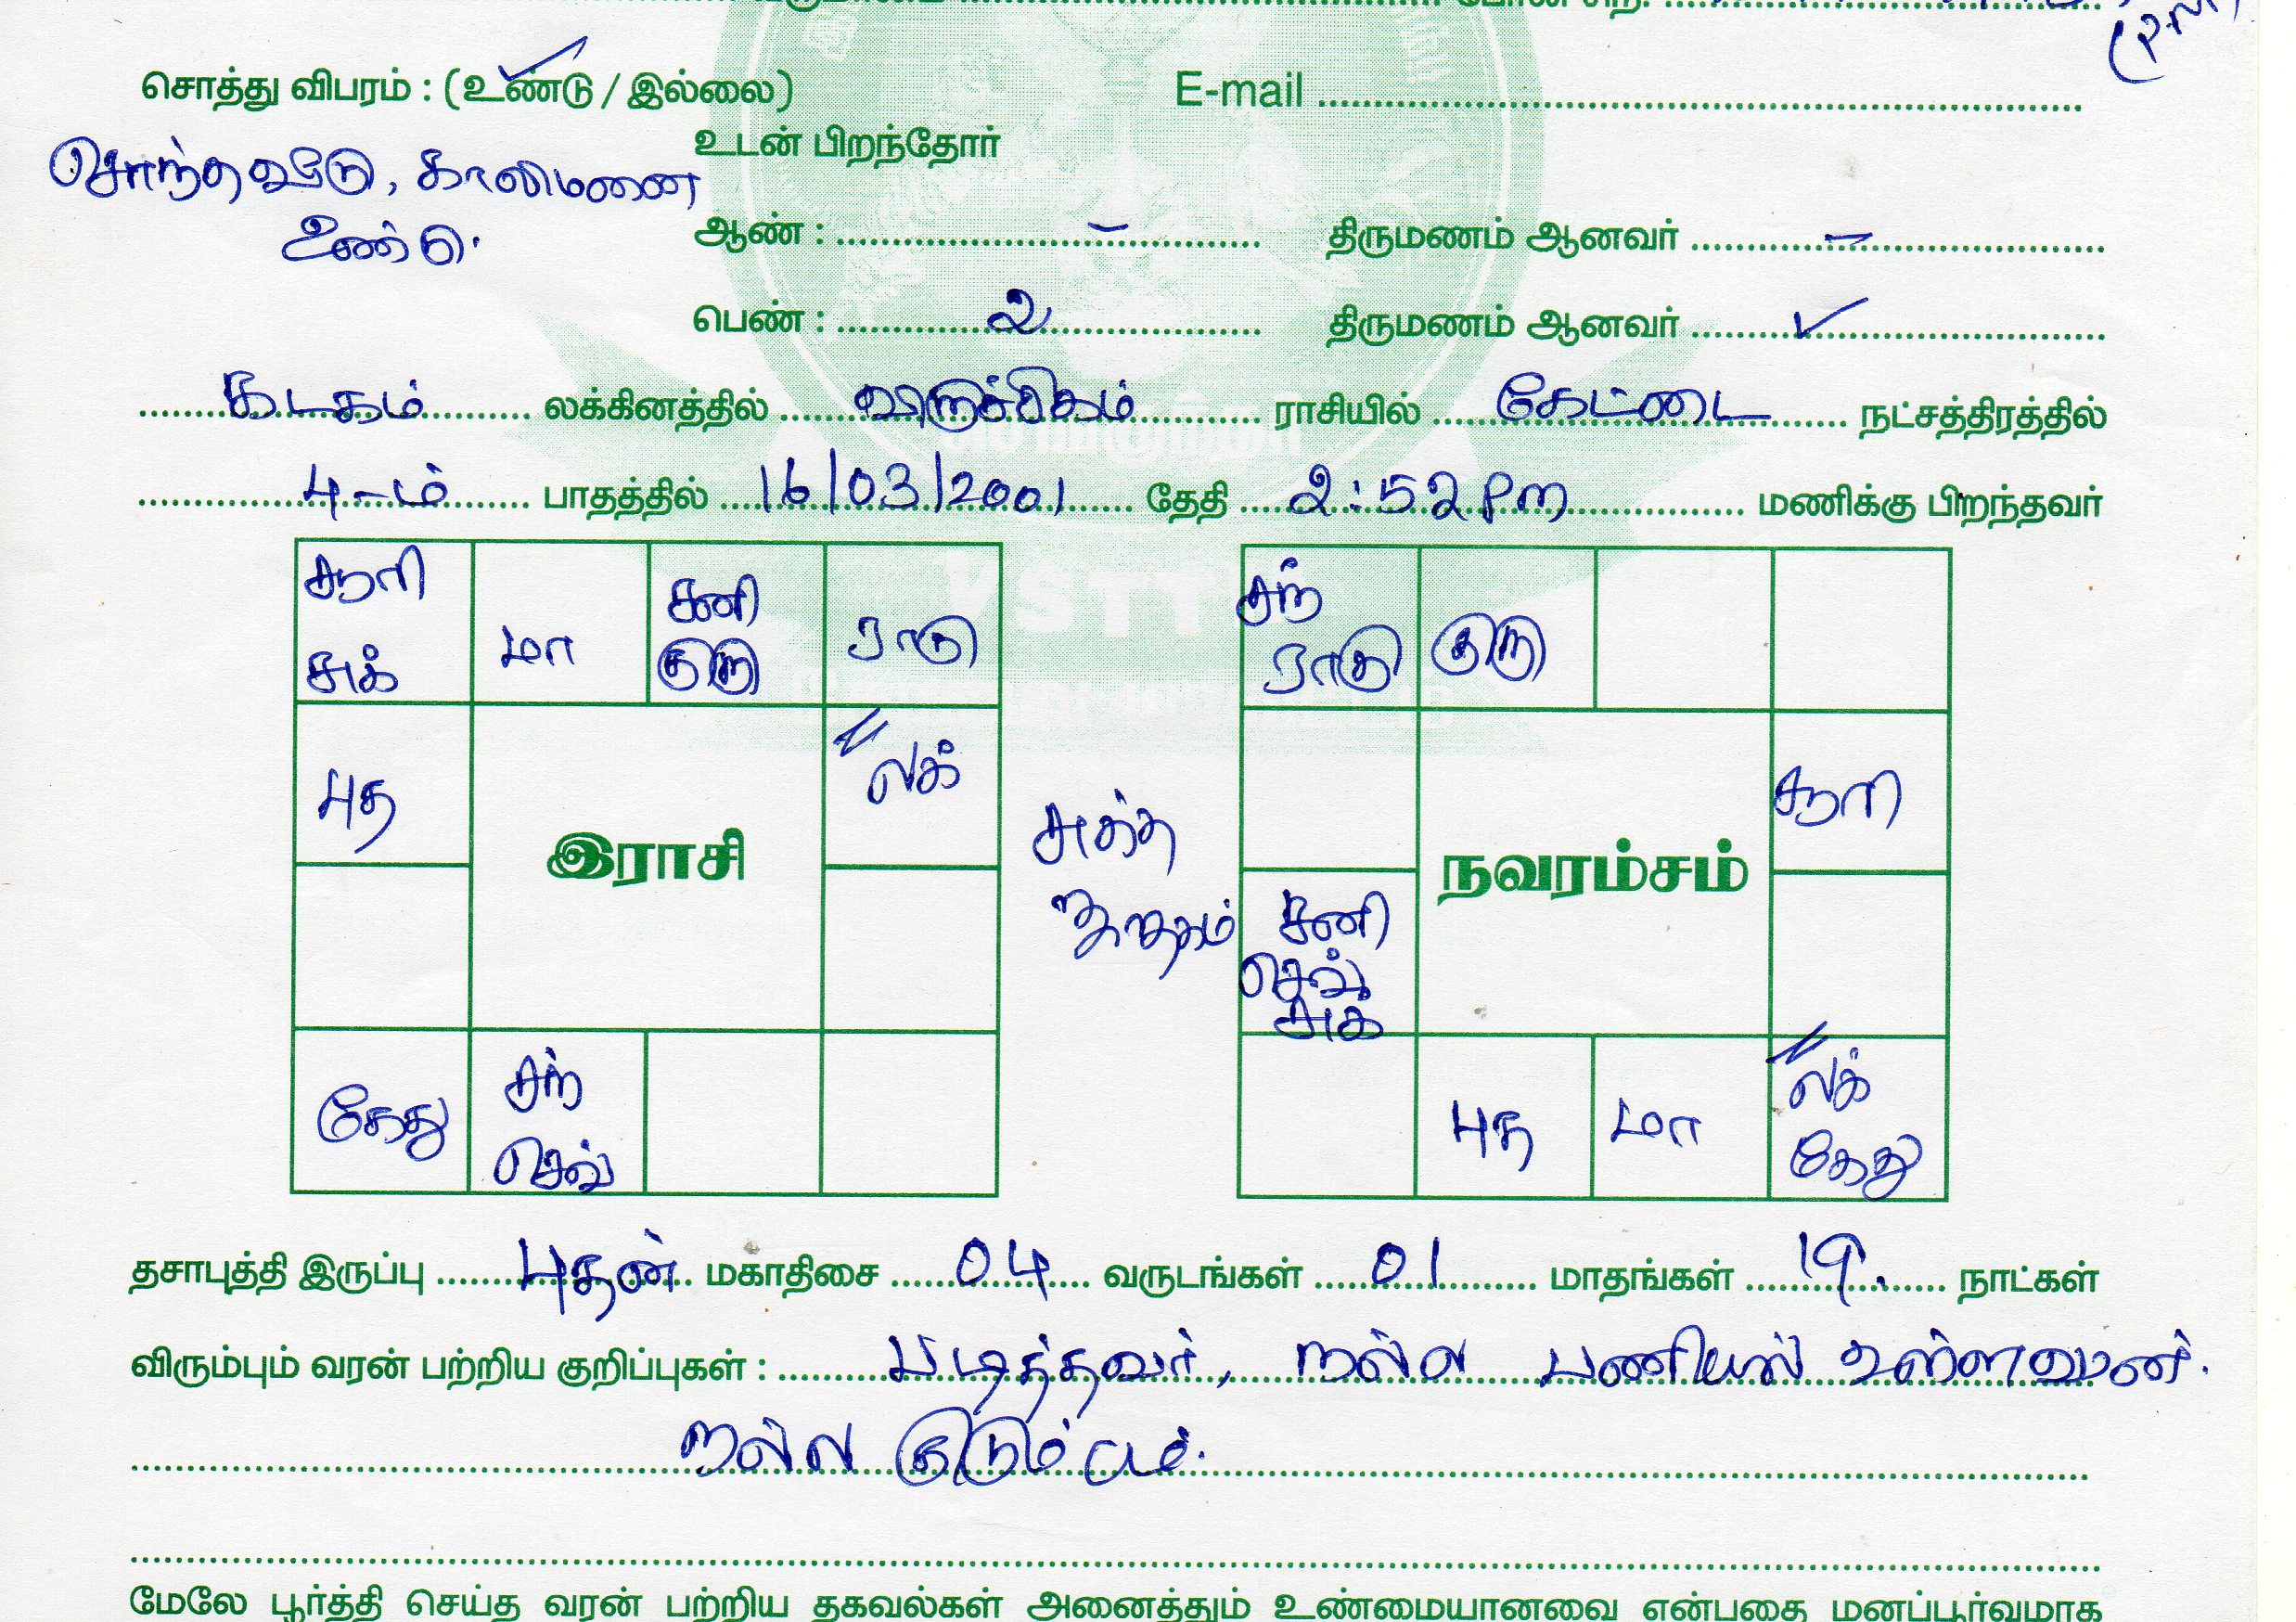 சொத்து விபரம் : (உண்டு / இல்லை) E-mail
உடன் பிறந்தோர்
சொந்தவீடு, காலிமனை
உண்டு.
ஆண் : – திருமணம் ஆனவர் –
பெண் : 2 திருமணம் ஆனவர் ✓
கடகம் லக்கினத்தில் விருச்சிகம் ராசியில் கேட்டை நட்சத்திரத்தில்
4-ம் பாதத்தில் 16/03/2001 தேதி 2:52 pm மணிக்கு பிறந்தவர்
சூரி
சுக்
மா
சனி
குரு
ராகு
புத
லக்
இராசி
கேது
சந்
செவ்
சுத்த
ஜாதகம்
சந்
ராகு
குரு
சூரி
நவரம்சம்
சனி
செவ்
சுக்
புத
மா
லக்
கேது
தசாபுத்தி இருப்பு புதன் மகாதிசை 04 வருடங்கள் 01 மாதங்கள் 19. நாட்கள்
விரும்பும் வரன் பற்றிய குறிப்புகள் : படித்தவர், நல்ல பணியில் உள்ளவமன்.
நல்ல குடும்பம்.
மேலே பூர்த்தி செய்த வரன் பற்றிய தகவல்கள் அனைத்தும் உண்மையானவை என்பதை மனப்பூர்வமாக